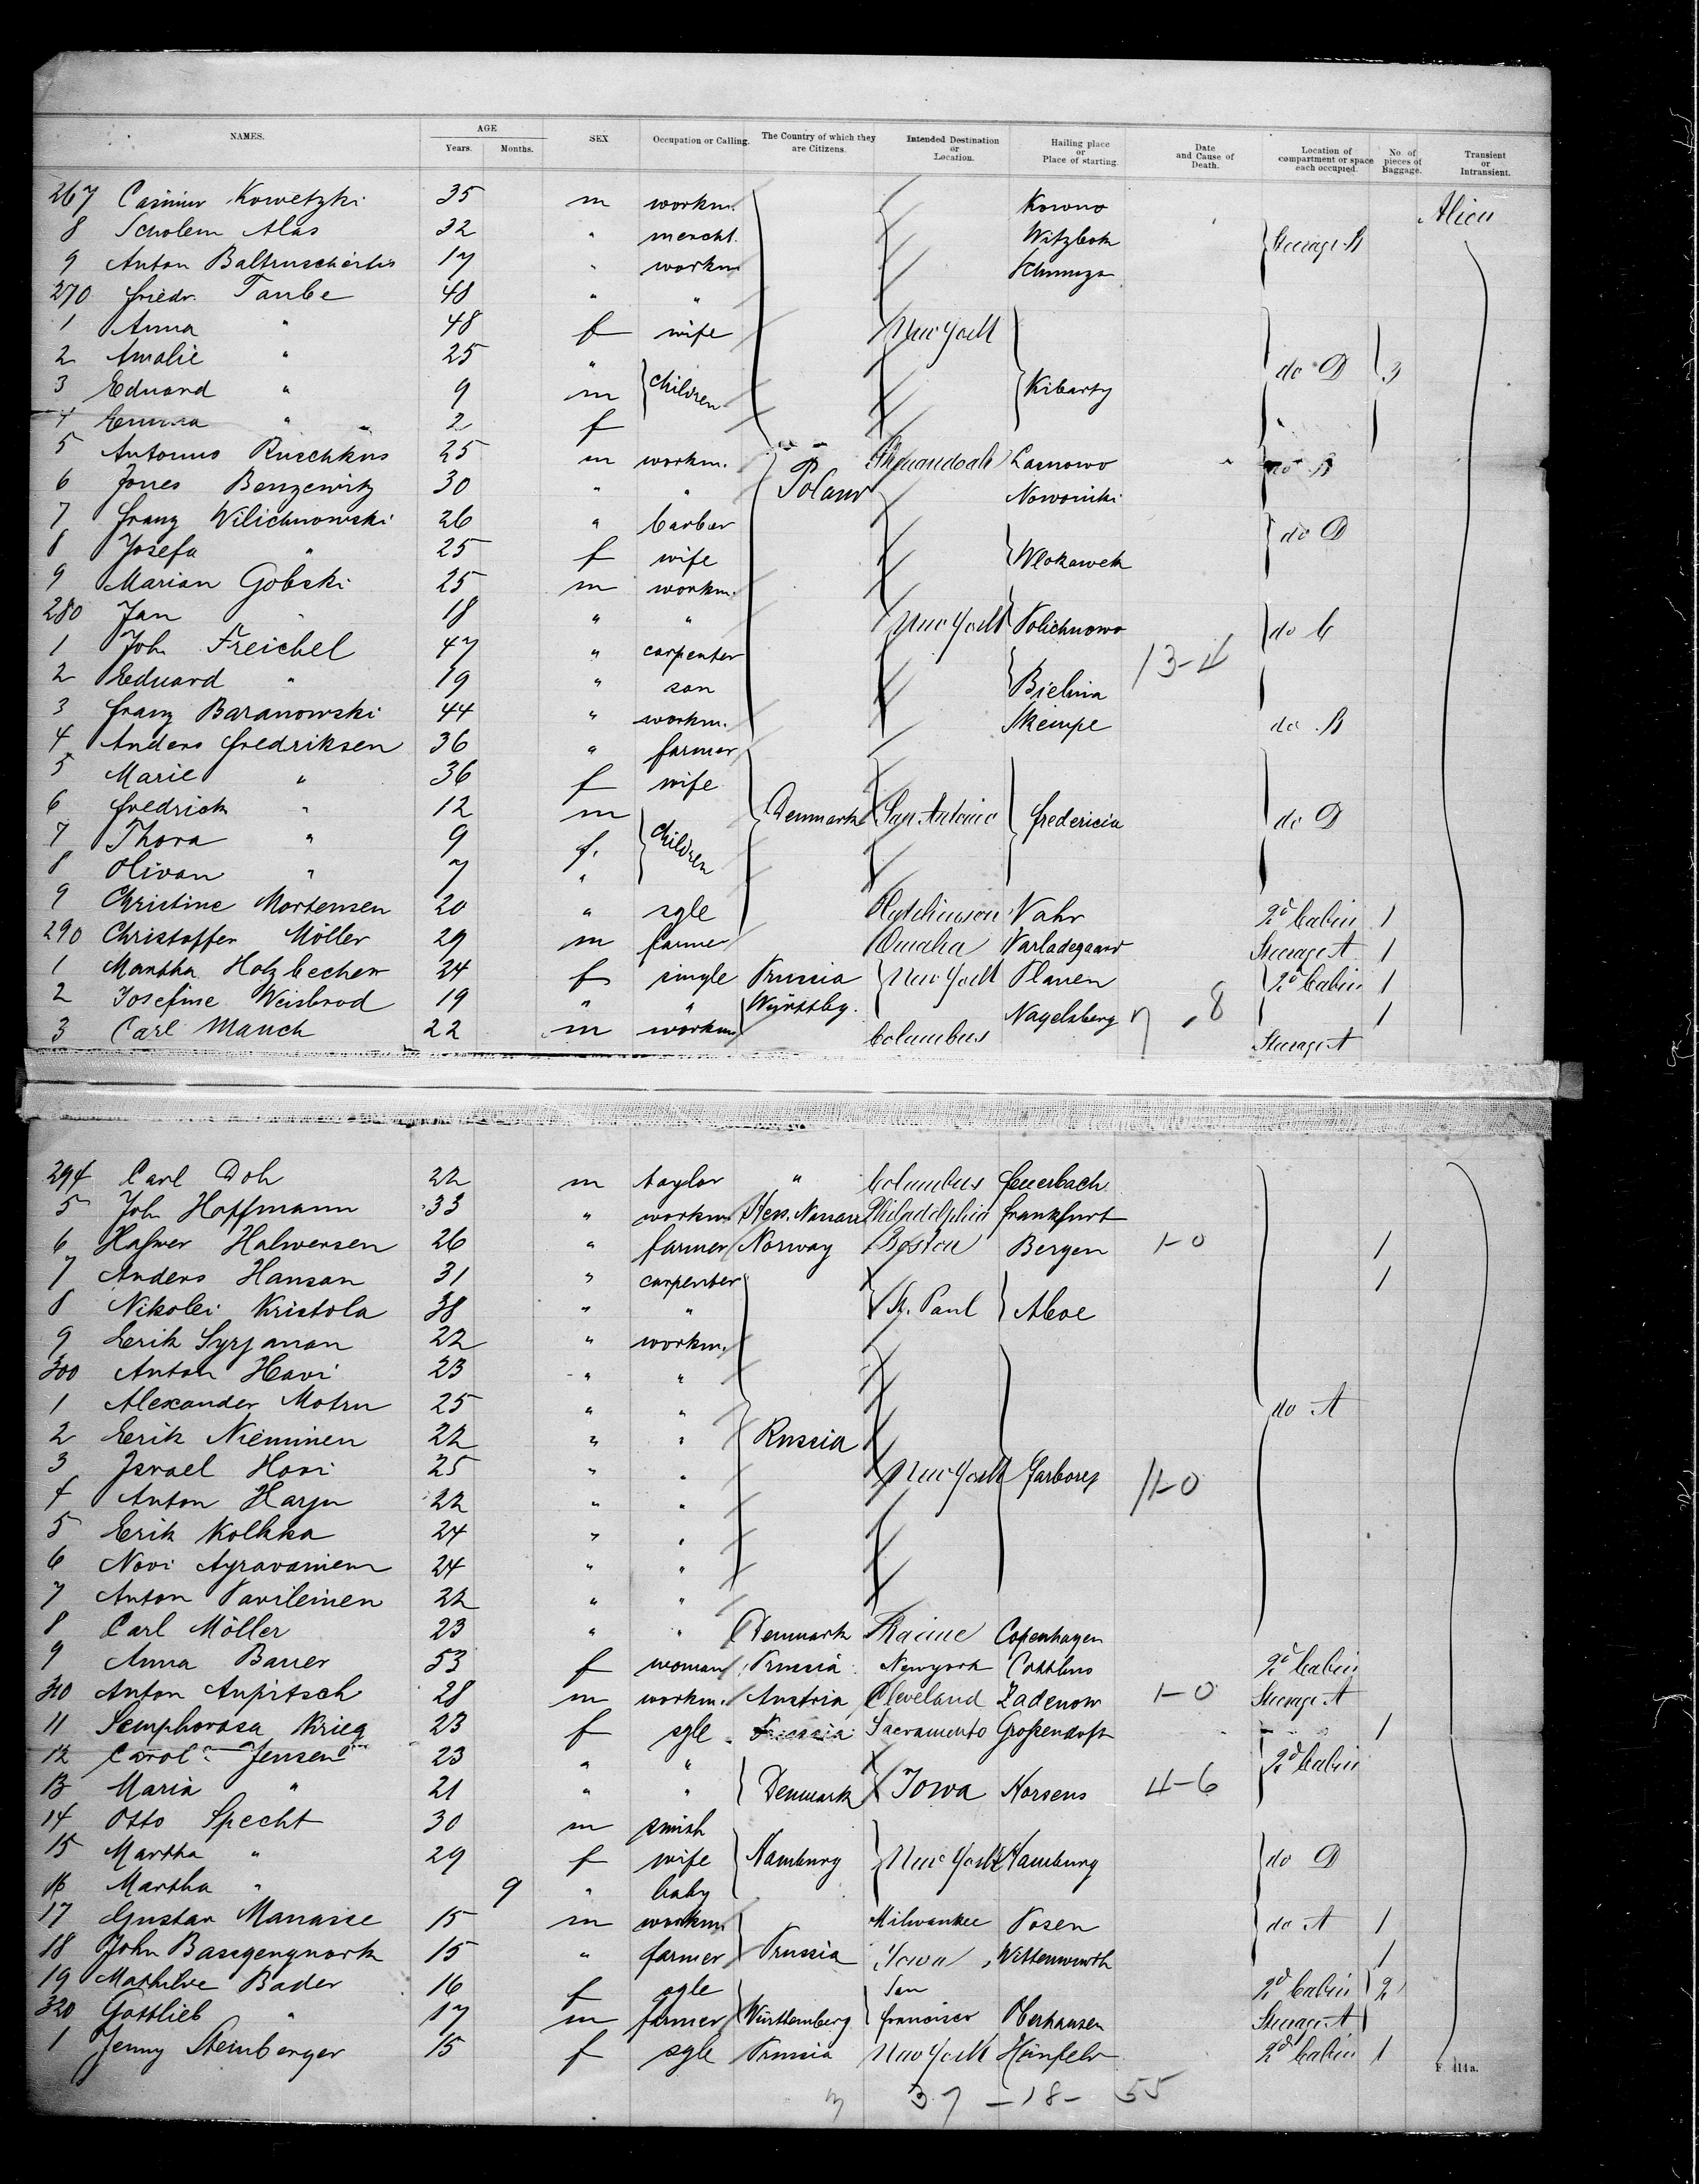 NAMES. AGE Years. Months. SEX Occupation or Calling. The Country of which they are Citizens. Intended Destination or Location. Hailing place or Place of starting. Date and Cause of Death. Location of compartment or space each occupied. No. of pieces of Baggage. Transient or Intransient.
267 Casimir Kowetzki 35 m workm. Kowno
8 Scholem Alas 32 " mercht. Steerage B
9 Anton 17 " workm
270 Friedr. Taube 48 " "
1 Anna " 48 f wife New York
2 Amalie " 25 " children do D 3
3 Eduard " 9 m Kibarty
4 Emma " 2 f
5 Antonus Ruschkus 25 m workm. Poland Shenandoah do B
6 Jones Benzewitz 30 " "
7 Franz Wilichnowski 26 " barber do D
8 Josefa " 25 f wife Wlozaweck
9 Marian Gobski 25 m workm.
280 Jan " 18 " " New York Polichnowo do C
1 Joh Freichel 47 " carpenter 13-4
2 Eduard " 19 " son Bielina
3 Franz Baranowski 44 " workm. Skempe do B
4 Anders Fredriksen 36 " farmer
5 Marie " 36 f wife
6 Fredrick " 12 m children Denmark San Antonio Fredericia do D
7 Thora " 9 f.
8 Olivan " 7 "
9 Christine Mortensen 20 " sgle Hutchinson Vahr 2d Cabin 1
290 Christoffer Möller 29 m farmer Omaha Steerage A 1
1 Martha Holzbecher 24 f single Prussia New York Plauen 2d Cabin 1
2 Josefine Weisbrod 19 " " Württbg. Nagelsberg 7 8 1
3 Carl Mauch 22 m workm Columbus Steerage A
294 Carl Doh 22 m taylor " Columbus Feuerbach
5 Joh Hoffmann 33 " workm Hess. Nassau Philadelphia Frankfurt
6 Halwersen 26 " farmer Norway Boston Bergen 1-0 1
7 Anders Hansan 31 " carpenter 1
8 Nikolei Kristola 38 " " St. Paul Aboe
9 Erik Syrjanan 22 " workm.
300 Anton Havi 23 " "
1 Alexander Motru 25 " " do A
2 Erik Nieminen 22 " " Russia
3 Israel Hovi 25 " " New York 11-0
4 Anton Harju 22 " "
5 Erik Kolkka 24 " "
6 Novi 24 " "
7 Anton Pavileinen 22 " "
8 Carl Möller 23 " " Denmark Racine Copenhagen
9 Anna Bauer 53 f woman Prussia Newyork Cottbus 2d Cabin
310 Anton Aupitsch 28 m workm. Austria Cleveland Zadenow 1-0 Steerage A
11 Semphorosa Krieg 23 f sgle Prussia Sacramento Großendorf 1
12 Carol. Jensen 23 " " 2d Cabin
13 Maria " 21 " " Denmark Iowa Horsens 4-6
14 Otto Specht 30 m smith
15 Martha " 29 f wife Hamburg New York Hamburg do D
16 Martha " 9 " baby
17 Gustav Manasse 15 m workm. Milwaukee Posen do A 1
18 John 15 " farmer Prussia Iowa 1
19 Mathilde Bader 16 f sgle San 2d Cabin 2
320 Gottlieb " 17 m farmer Württemberg francisco Oberhausen Steerage A
1 Jenny Steinberger 15 f sgle Prussia New York Hünfeld 2d Cabin 1
F 111a.
37 -18- 55